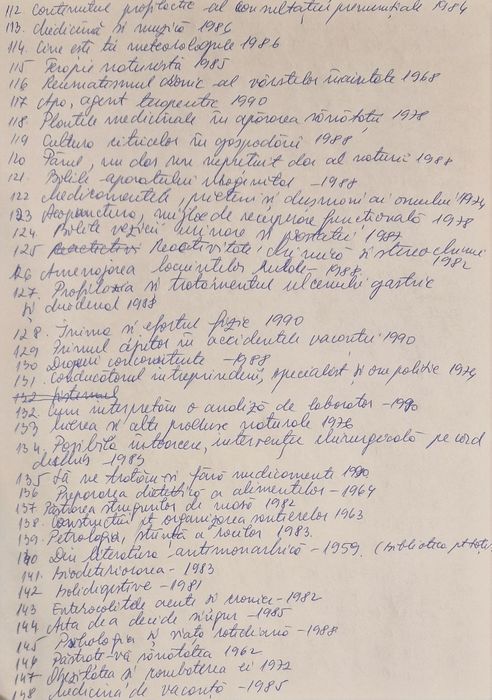 112 Conținutul profilactic al consultației prenupțiale 1984
113. Medicină și muzică 1986
114. Cine ești tu meteorologule 1986
115 Terapie naturistă 1985
116 Reumatismul cronic al vârstelor înaintate 1968
117 Apa, agent terapeutic 1990
118 Plantele medicinale în apărarea sănătății 1978
119 Cultura citricelor în gospodării 1988
120 Părul, un dar al naturii 1988
121. Bolile aparatului urogenital - 1988
122 Medicamentele, prieteni și dușmani ai omului 1974
123 Acupunctura, mijloc de recuperare funcțională 1978
124. Bolile vezicii urinare și prostatei 1987
125 Reactivitate chimică și stereochimie 1982
126 Amenajarea locuințelor rurale - 1988
127. Profilaxia și tratamentul ulcerului gastric
și duodenal 1988
128. Inima și efortul fizic 1990
129 Primul ajutor în accidentele vacanței 1990
130 Dropii - 1988
131. Conducătorul întreprinderii, specialist și om politic 1974
132. Cum interpretăm o analiză de laborator - 1990
133 Mierea și alte produse naturale 1976
134. întoarcere, intervenție chirurgicală pe cord
deschis - 1983
135 Să ne tratăm și fără medicamente 1990
136 Prepararea dietetică a alimentelor - 1964
137 Păstrarea strugurilor de masă 1982
138. Construcții pt organizarea șantierelor 1963
139. Petrologia, știință a rocilor 1983.
140 Din literatura antimonarhică - 1959. (Biblioteca pt toți
141. Biodeteriorarea - 1983
142 Bolidigestive - 1981
143 Enterocolitele acute și cronice - 1982
144 Arta de a decide singur - 1985
145 Psihologia și viața cotidiană - 1988
146 Păstrați-vă sănătatea 1962
147 Obezitatea și combaterea ei 1972
148 Medicina de vacanță - 1985